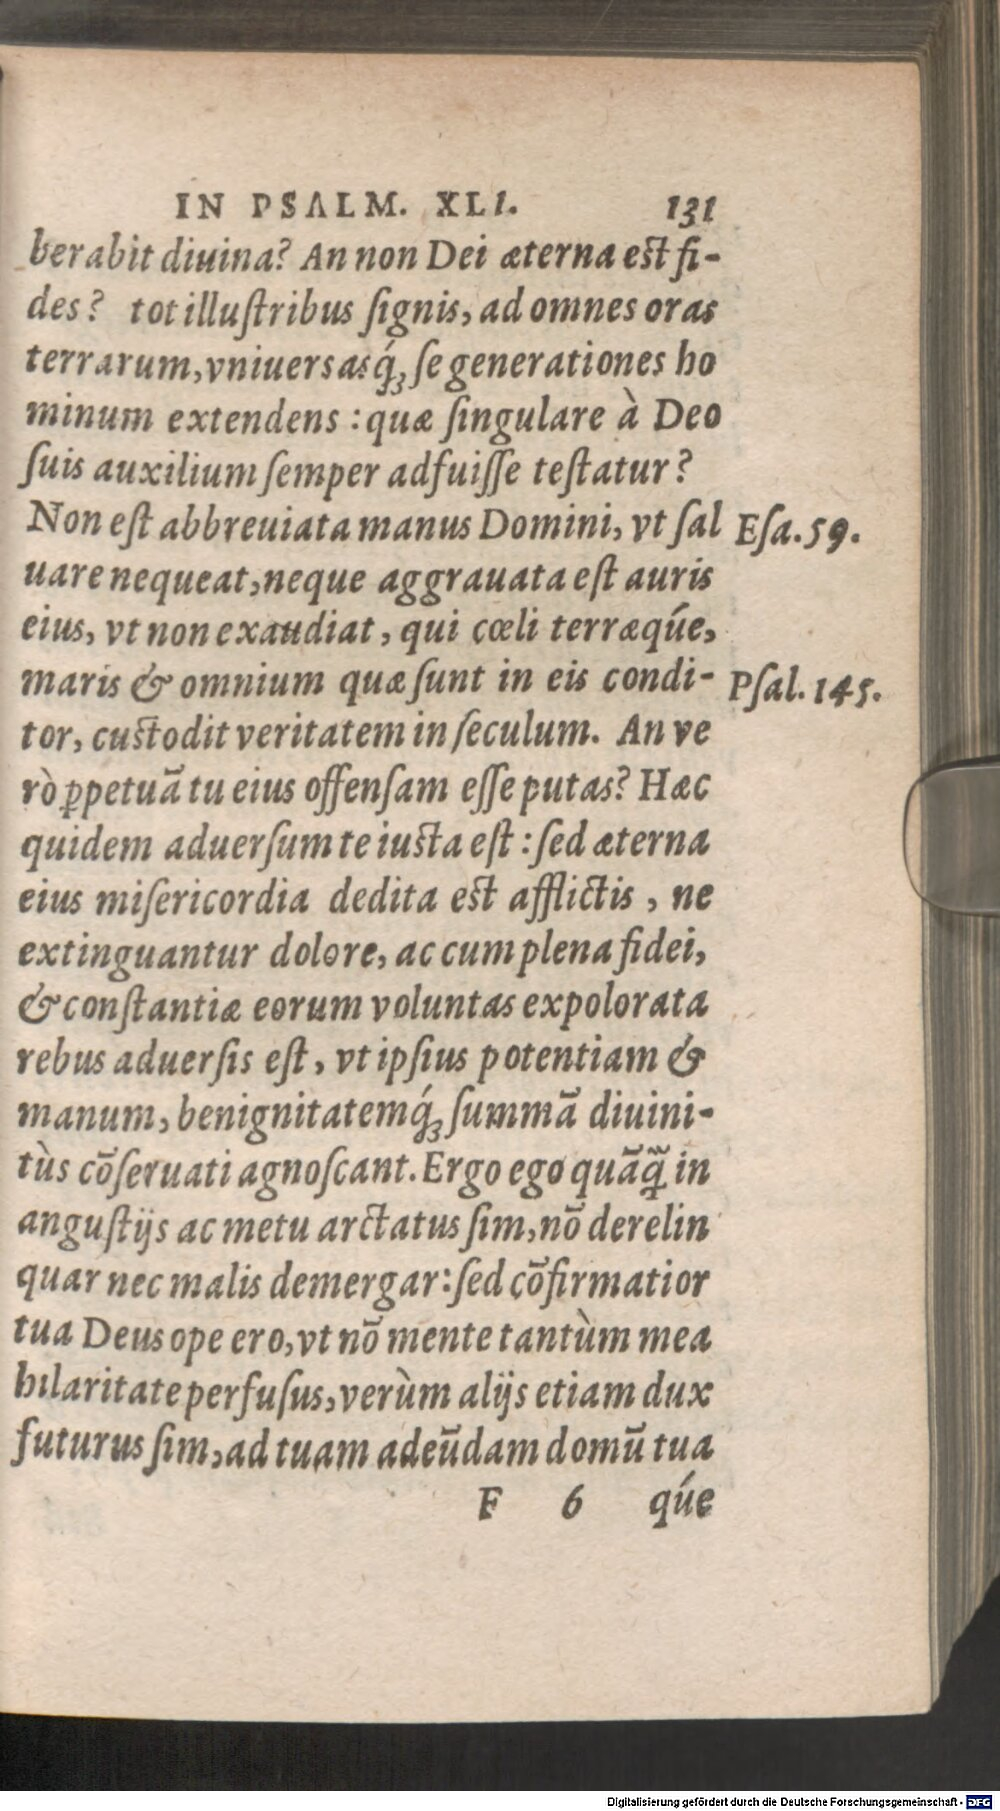 IN PSALM. XLI. 131
berabit diuina? An non Dei æterna est fi-
des? tot illustribus signis, ad omnes oras
terrarum, vniuersasq́ꝫ se generationes ho
minum extendens: quæ singulare à Deo
suis auxilium semper adfuisse testatur?
Non est abbreuiata manus Domini, vt sal Esa. 59.
uare nequeat, neque aggrauata est auris
eius, vt non exaudiat, qui cœli terræq́ue,
maris & omnium quæ sunt in eis condi- Psal. 145.
tor, custodit veritatem in seculum. An ve
rò ꝑpetuã tu eius offensam esse putas? Hæc
quidem aduersum te iusta est: sed æterna
eius misericordia dedita est afflictis, ne
extinguantur dolore, ac cum plena fidei,
& constantiæ eorum voluntas expolorata
rebus aduersis est, vt ipsius potentiam &
manum, benignitatemq́ꝫ summã diuini-
tùs cõseruati agnoscant. Ergo ego quãq̃ in
angustijs ac metu arctatus sim, nõ derelin
quar nec malis demergar: sed cõfirmatior
tua Deus ope ero, vt nõ mente tantùm mea
hilaritate perfusus, verùm alijs etiam dux
futurus sim, ad tuam adeũdam domũ tua
F 6 q́ue
Digitalisierung gefördert durch die Deutsche Forschungsgemeinschaft - DFG